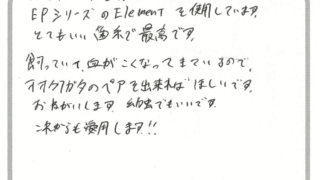 EPシリーズのElementを使用しています。
とてもいい魚糸で最高です。
飼っていて血がこくなってきているので、
オオクワガタのペアを出来ればほしいです。
おねがいします。幼虫でもいいです。
これからも愛用します!!